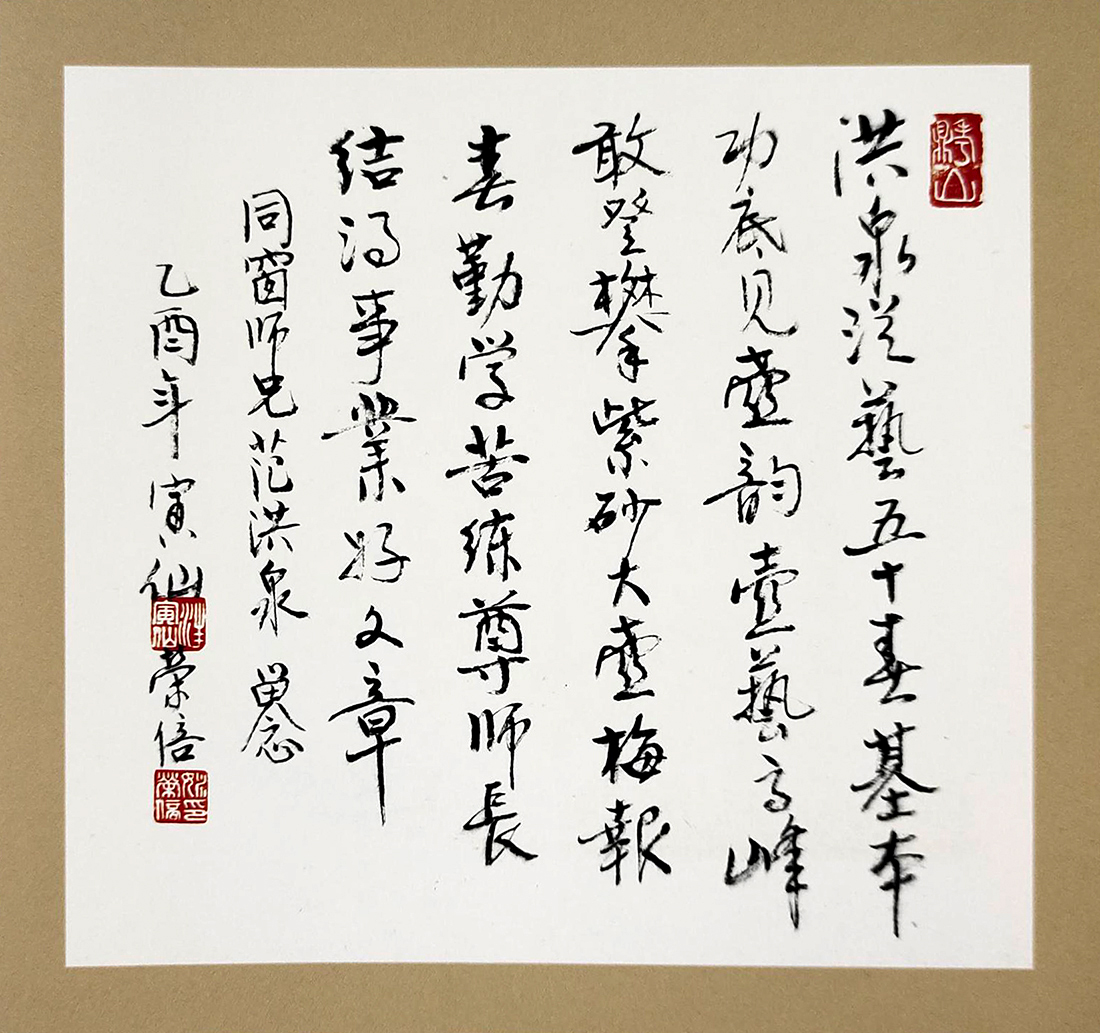 洪泉从藝五十春基本
功底见壶韵壶藝高峰
敢登攀紫砂大壶梅報
春勤学苦练尊师長
结得事業好文章
同窗师兄范洪泉 留念
乙酉年 寅仙 荣倍